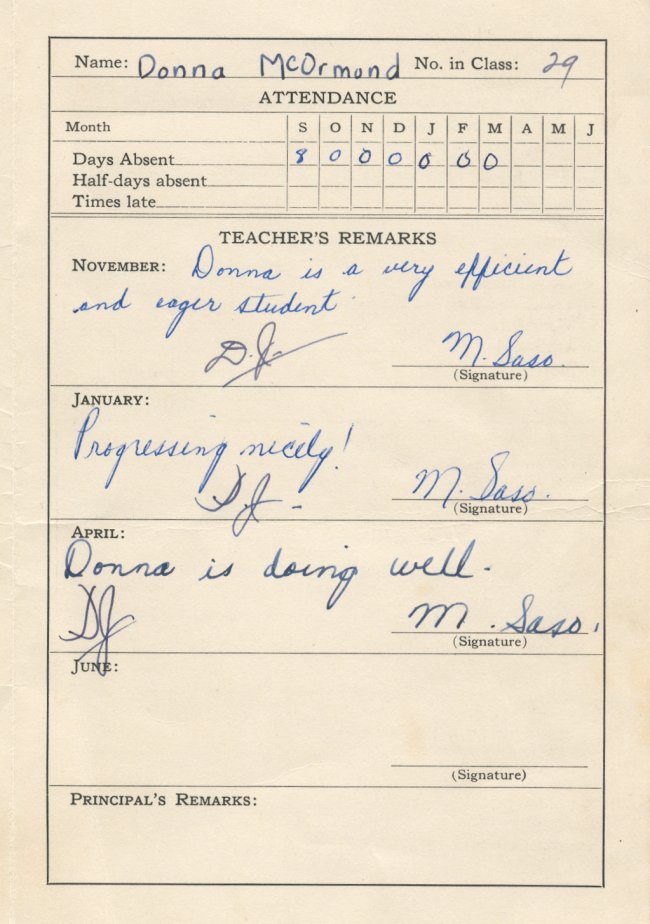 Name: Donna McOrmond No. in Class: 29
ATTENDANCE
Month S O N D J F M A M J
Days Absent 8 0 0 0 0 0 0
Half-days absent
Times late
TEACHER'S REMARKS
NOVEMBER: Donna is a very efficient
and eager student.
D.J.
M. Saso.
(Signature)
JANUARY:
Progressing nicely!
D.J.
M. Saso.
(Signature)
APRIL:
Donna is doing well.
DJ
M. Saso.
(Signature)
JUNE:
(Signature)
PRINCIPAL'S REMARKS: